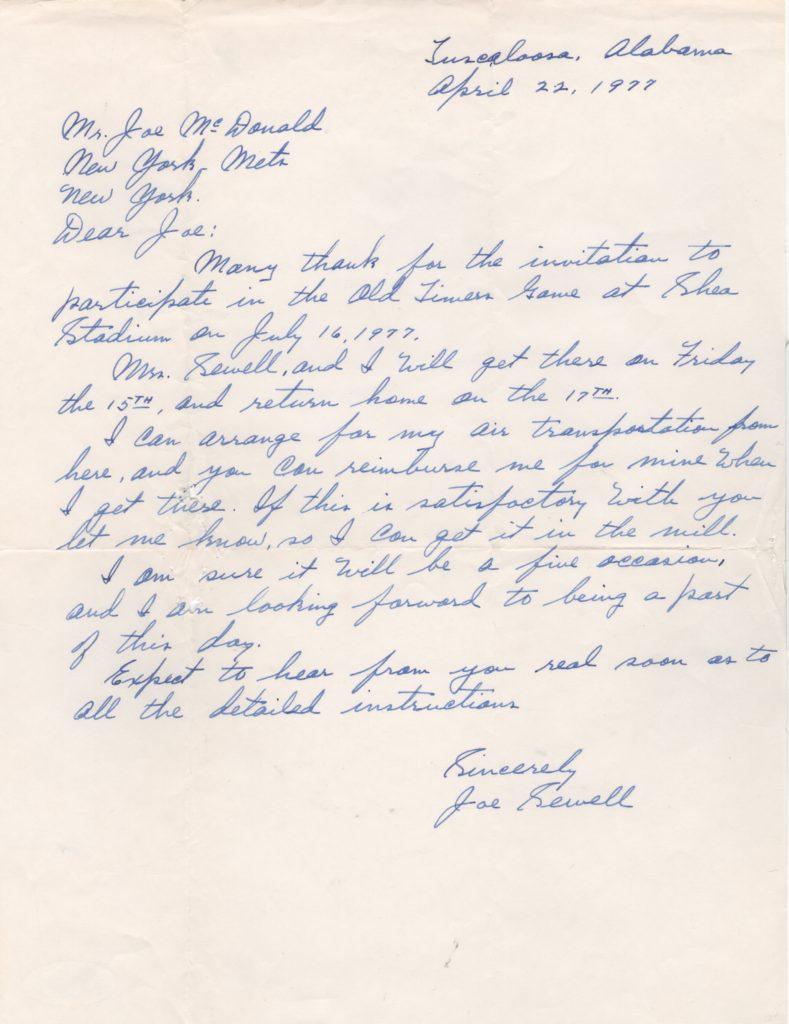 Tuscaloosa, Alabama
April 22, 1977
Mr. Joe Mc Donald
New York, Mets
New York.
Dear Joe:
Many thank for the invitation to
participate in the Old Timers Game at Shea
Stadium on July 16, 1977.
Mrs. Sewell, and I will get there on Friday
the 15TH, and return home on the 17TH.
I can arrange for my air transportation from
here, and you can reimburse me for mine when
I get there. If this is satisfactory with you
let me know, so I can get it in the mill.
I am sure it will be a fine occasion,
and I am looking forward to being a part
of this day.
Expect to hear from you real soon as to
all the detailed instructions
Sincerely
Joe Sewell